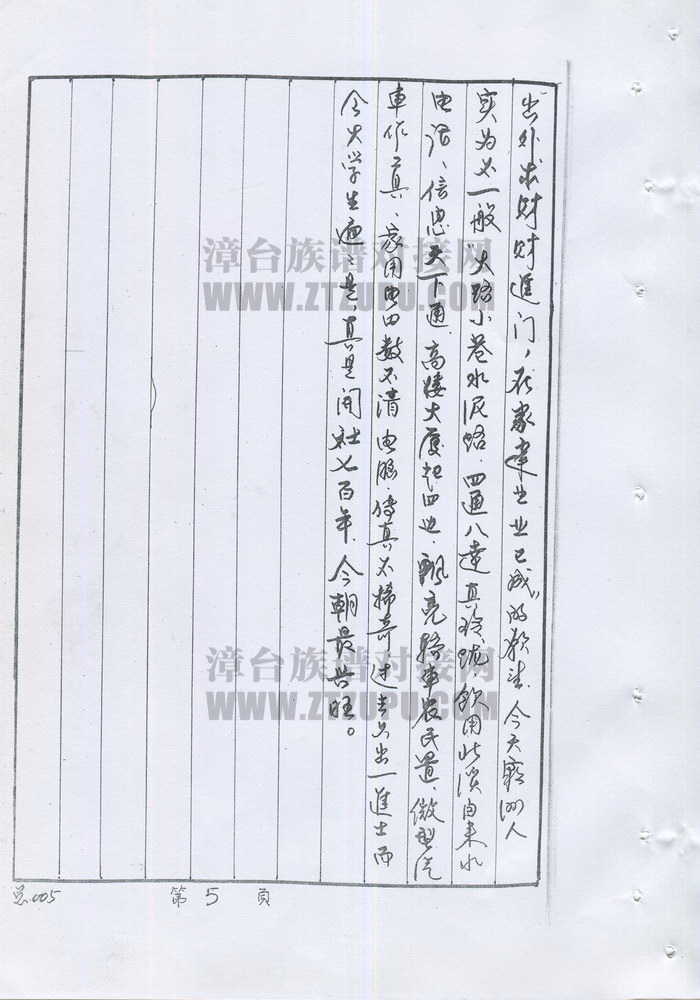 出外求财财进门，在家建出业已成”的歌来。今天霞洲人
实为不一般，大路小巷水泥路，四通八达真玲珑，饮用北溪自来水
电话、信息天下通，高楼大厦起四地，飘亮轿车农民置，微型汽
車作工具，家用电田数不清，电脑、传真不稀奇，过去只出一進士而
今大学生遍遍是，真是開社七百年，今朝最兴旺。
总005 第5頁
漳台族谱对接网
WWW.ZTZUPU.COM
漳台族谱对接网
WWW.ZTZUPU.COM